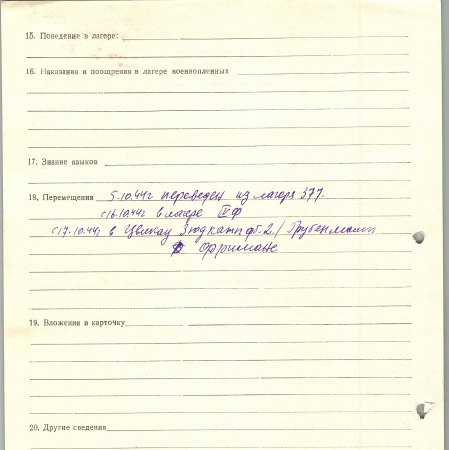 15. Поведение в лагере:
16. Наказания и поощрения в лагере военнопленных
17. Знание языков
18. Перемещения 5.10.44г переведен из лагеря 377.
с 16.10.44г в лагере IV ф
с 17.10.44г в
19. Вложения в карточку
20. Другие сведения